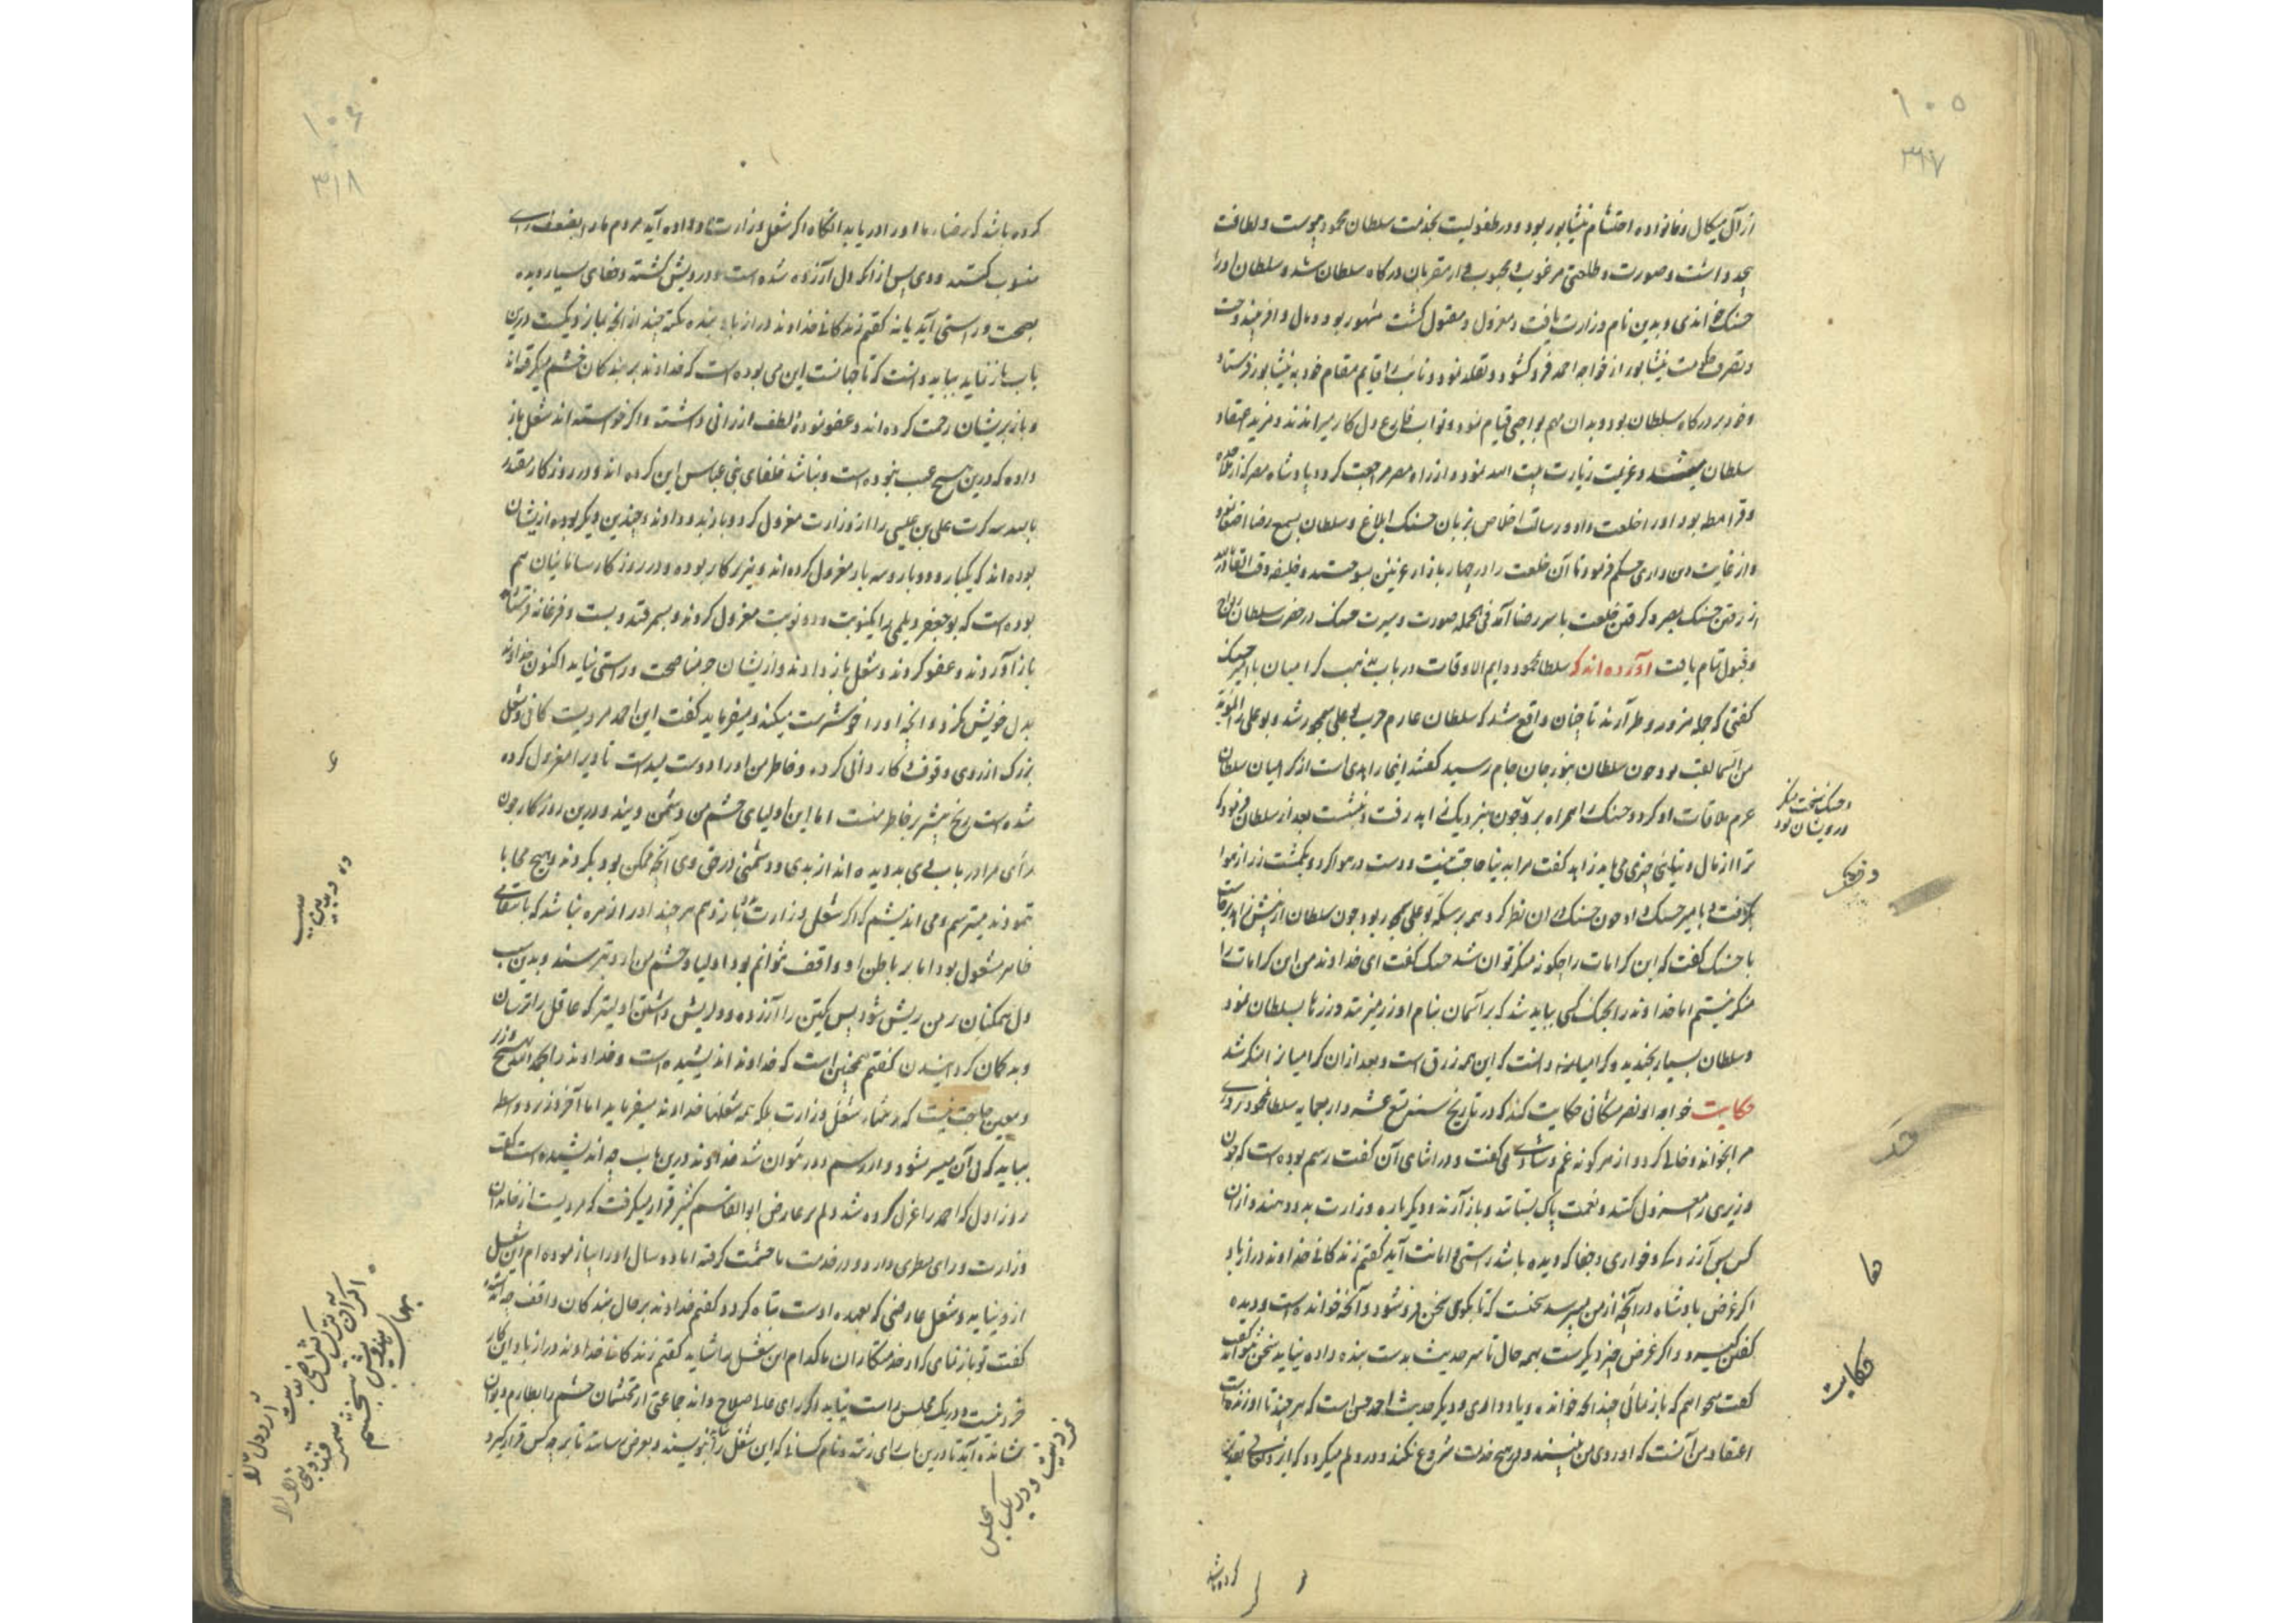 ۱۰۵
۳۱۷
از آل میکال و خانواده احتشام نیشابور بود و در طفولیت بخدمت سلطان محمود پیوست و لطافت
بیحد داشت و صورت و طلعتی مرغوب و محبوب از مقربان درگاه سلطان شد و سلطان او را
حسنک خواندی و بدین نام وزارت یافت و معزول و مقتول گشت مشهور بود و مال وافر
و تصرف حکومت نیشابور از خواجه احمد فرو کشود و تقلد نمود و نائب را قایم مقام خود به نیشابور فرستاد
و خود بر درگاه سلطان بود و بدان مهم بواجبی قیام نمود و نواب فارغ دل کار میراندند و مزید اعتقاد
سلطان میشد و عزیمت زیارت بیت الله نمود و از راه مصر مراجعت کرد و پادشاه مصر که از
و قرامطه بود او را خلعت داد و رسالت اخلاص بزبان حسنک ابلاغ و سلطان بسمع رضا اصغا نمود
و از غایت دین داری حکم فرمود تا آن خلعت را در چهار بازار غزنین بسوختند و خلیفه وقت القادر بالله
از رفتن حسنک بمصر و گرفتن خلعت با سر رضا آمد فی الجمله صورت و سیرت حسنک در حضرت سلطان
و قبول تمام یافت آورده اند که سلطان محمود دایم الاوقات در باب مذهب کرامیان با امیر حسنک
گفتی که جمله مزور و طرارند تا چنان واقع شد که سلطان عازم حرب بوعلی سیمجور شد و بوعلی را
من السما لقب بود چون سلطان بنوزجان جام رسید گفتند اینجا زاهدی است از کرامیان سلطان
عزم ملاقات او کرد و حسنک را همراه برد چون بنزدیک زاهد رفت و بنشست بعد از سلطان فرمود که
ترا از مال دنیائی چیزی می باید زاهد گفت مرا بدنیا حاجت نیست و دست در هوا کرد و یکمشت زر از هوا
بگرفت و بامیر حسنک داد چون حسنک در آن نظر کرد همه بر سکه بوعلی سیمجور بود چون سلطان از پیش زاهد
با حسنک گفت که این کرامات را چکونه منکر توان شد حسنک گفت ای خداوند من این کرامات را
منکر نیستم اما خداوند را بجنگ کسی نباید شد که بر آسمان بنام او زر میزنند و زرها بسلطان نمود
و سلطان بسیار بخندید و کرامیان دانست که این همه زرق است و بعد از آن کرامیان را منکر شد
حکایت خواجه ابو نصر مشکانی حکایت کند که در تاریخ سنه تسع عشر و اربعمایه سلطان محمود روزی
مرا بخواند و خالی کرد و از هر گونه غم و شادی می گفت و در اثنای آن گفت رسم بوده است که چون
وزیری را معزول کنند و نعمت پاک بستانند و باز آرند و دیگر باره وزارت بدو دهند و از آن
کس پس آزردگی و خواری و جفا که دیده باشد راستی و امانت آید گفتم زندکانی خداوند دراز باد
اگر غرض پادشاه در آنچه از من میپرسد سخنست که تا بگویم سخن فرو شود و آنچه خوانده است و دیده
گفتن گیرد و اگر غرض چیز دیگرست بهمه حال تا سر حدیث بدست بنده داده نیاید سخن نتواند گفت
گفت میخواهم که باز نمائی چند آنچه خوانده و یاد داری و دیگر حدیث احمد حسن است که هر چند تا او زنده است
اعتقاد من آنست که او روی من نبیند و در هیچ خدمت شروع نکند و در دلم میگردد که از وی
و حسنک سخت منکر
درویشان بود
حکایت
کرده باشد
۱۰۶
۳۱۸
کرده باشد که رضاء ما او را دریابد آنگاه اگر شغل وزارت بدو داده آید مردم ما را بضعف رای
منسوب کنند و وی پس از آنکه دل آزرده شده است و درویش گشته و جفای بسیار دیده
بصحت و راستی آید یا نه گفتم زندگانی خداوند دراز باد بنده نکته چند از آنچه باز
باب باز نماید بباید دانست که تا جهانست این می بوده است که خداوند بر بندگان خشم میگرفته اند
و باز بریشان رحمت کرده اند و عفو نموده لطف ارزانی داشته و اگر خواسته اند شغل باز
داده که درین هیچ عیب نبوده است و نباشد خلفای بنی عباس این کرده اند و در روزکار مقتدر
بالله سه کرت علی بن عیسی را از وزارت معزول کرد و باز بدو دادند و چندین دیگر بوده از ایشان
بوده اند که یکبار و دو بار و سه بار معزول کرده اند و نیز بر کار بوده و در روزکار سامانیان هم
بوده است که بو جعفر دیلمی را یکنوبت و دو نوبت معزول کردند و بسمرقند و بست و فرغانه فرستاده
باز آوردند و عفو کردند و شغل باز دادند و از ایشان جز مناصحت و راستی نیاید اکنون خداوند
بدل خویش کرد و آنچه او را خوشترست میکند و میفرماید گفت این احمد مردیست کافی و شغل
بزرک از روی وقوف و کاردانی کرده و خاطر من او را دوست میداشت تا ویرا معزول کرده
شده است رنج بیشتر بر خاطر منست اما این اولیای حشم من دشمن ویند و درین روزکار چون
رأی مرا در باب وی بد دیده اند از بدی و دشمنی در حق وی آنچه ممکن بود بکردند و هیچ محابا
ننمودند میترسم و می اندیشم که اگر شغل وزارت باز دهم هر چند او را زهره نباشد که بانتقامی
ظاهر مشغول بود اما بر باطن او واقف نتوانم بود اولیا و حشم من از وی ترسند و بدین سبب
دل همکنان بر من ریش شود پس یکتن را آزرده و دلریش داشتن اولیتر که عاقل را ترسان
و بد گمان گردانیدن گفتم همچنین است که خداوند اندیشیده است و خداوند را بحمد الله بهیچ وزر
و معین حاجت نیست که در شمار شغل وزارت بلکه همه شغلها خداوند میفرماید اما آخر وزیر و واسطه
بباید که دل آن میسر شود و از رسم دور نتوان شد خداوند درین باب چه اندیشیده است گفت
روز اول که احمد را عزل کرده شد دلم بر عارض ابوالقاسم کثیر قرار میگرفت که مردیست از خاندان
وزارت و رای سطری دارد و در خدمت ما حشمت گرفته اما دو سال او را بیازموده ام این شغل
ازو نیاید و شغل عارضی که بعهده اوست تباه کردد گفتم خداوند بر حال بندکان واقف
گفت تو باز نمای که از خدمتکاران ما کدام این شغل را شاید گفتم زندگانی خداوند دراز باد این کار
خرد نیست و در یک مجلس راست نیاید و اگر رای عالی صلاح داند جماعتی از محتشمان حشم را بطارم دیوان
نشانده آید تا درین باب رای زنند و نام کسانی که این شغل را بنویسند و بعرض رسانند تا بر چه کس قرار گیرد
خرد نیست و در یک مجلس